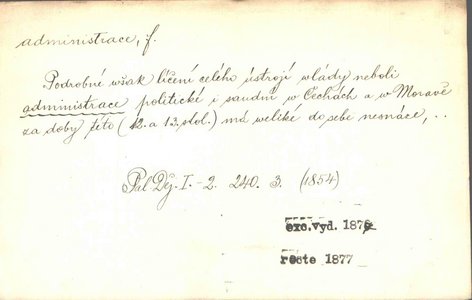 administrace, f.
Podrobné wšak líčení celého ústrojí wlády neboli
administrace politické i saudní w Čechách a w Morawě
za doby této (12. a 13. stol.) má weliké do sebe nesnáze, ..
Pal. Děj. I.-2. 240. 3. (1854)
exc.vyd. 1876
recte 1877